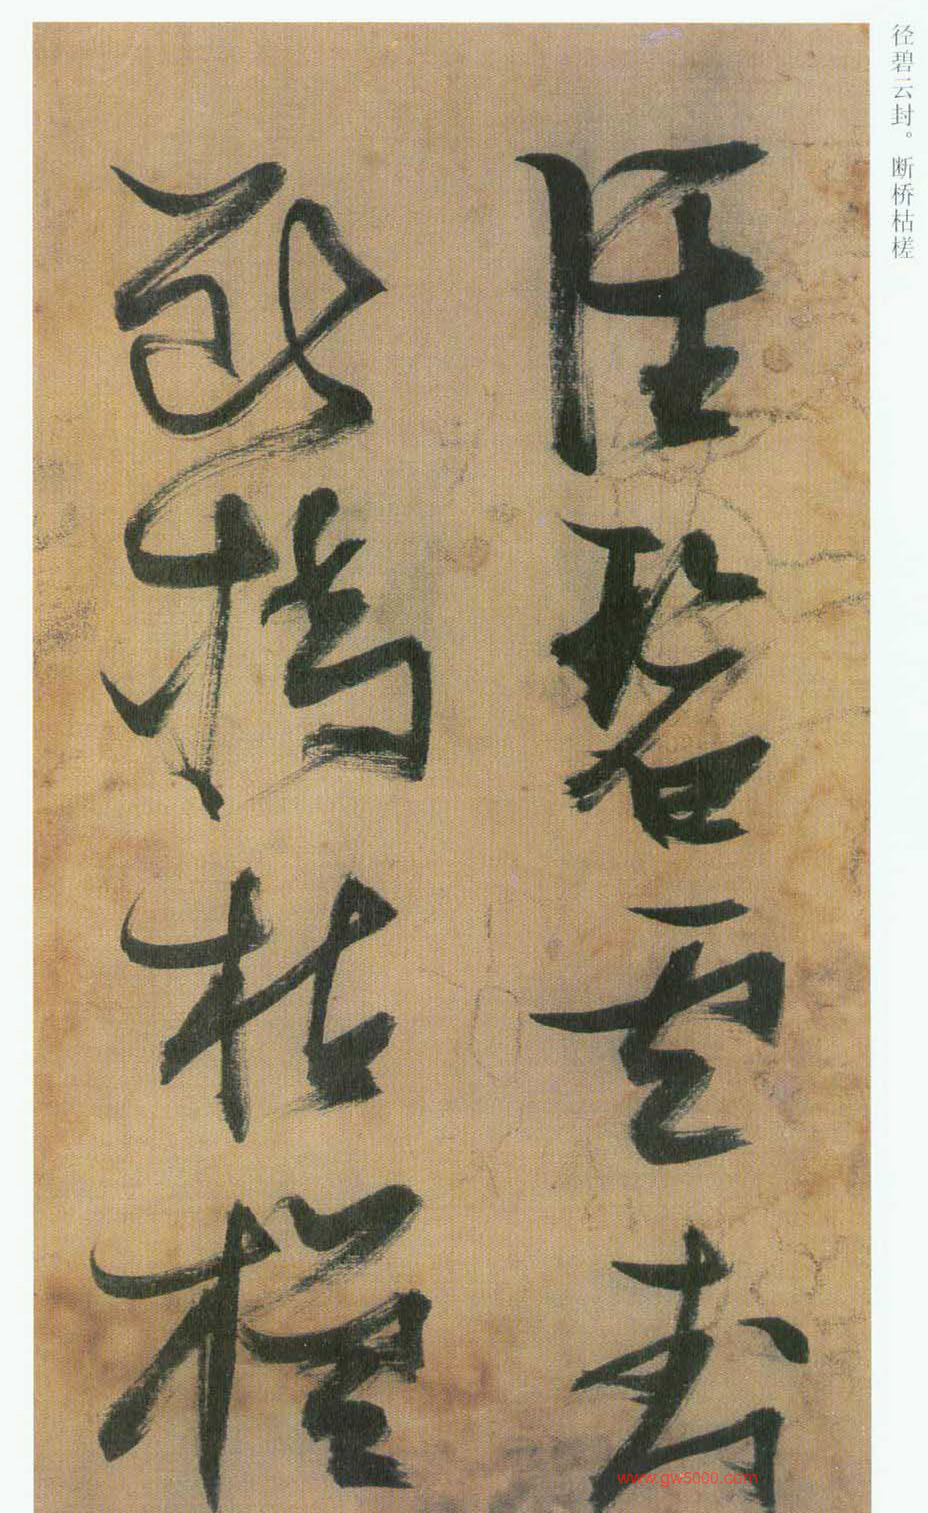 径碧云封。断桥枯槎
径碧云封
断桥枯槎
www.gw5000.com